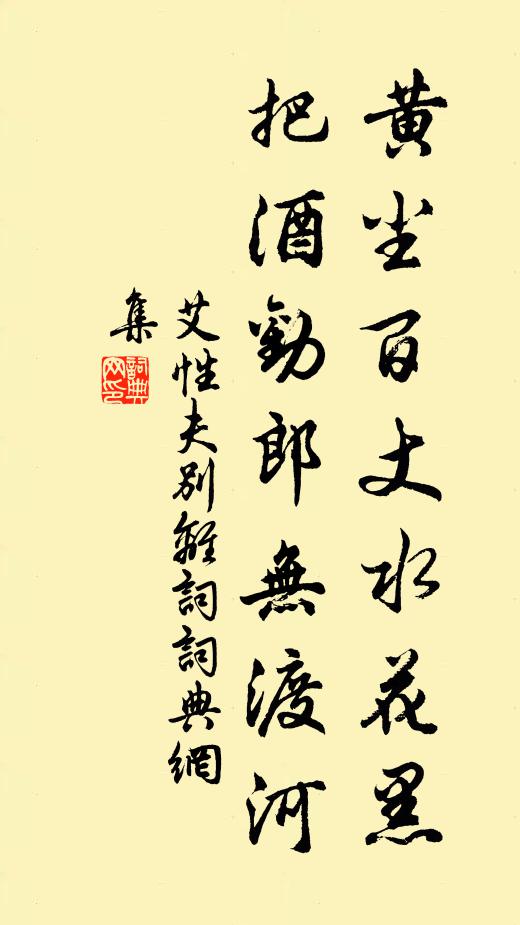 黄尘百丈水花黑
把酒勸郎無渡河
艾性夫別離詞詞典網
集
詞典网印